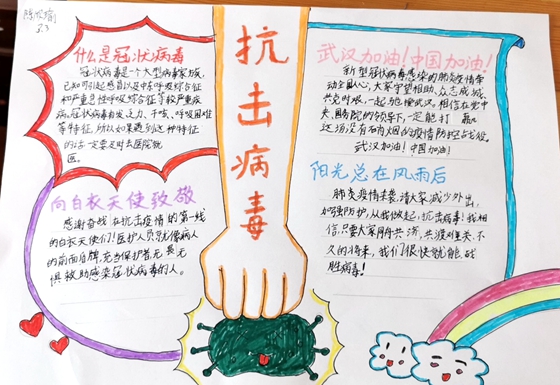 3.3
什么是冠状病毒
冠状病毒是一个大型病毒家族，
已知可引起感冒以及中东呼吸综合征
和严重急性呼吸综合征等较严重疾
病。冠状病毒有发乏力、干咳、呼吸困难
等特征，所以如果遇到这种特征
的话一定要及时去医院就
医。
向白衣天使致敬
感谢奋战在抗击疫情的第一线
的白衣天使们！医护人员就像病人
的前面盾牌，充当保护者，无畏无
惧救助感染冠状病毒的人。
抗击病毒
武汉加油！中国加油！
新型冠状病毒感染的肺炎疫情牵
动全国人心，大家守望相助、众志成城、
共克时艰，一起驰援武汉。相信在党中
央、国务院的领导下，一定能打赢
这场没有硝烟的疫情防控战役。
武汉加油！中国加油！
阳光总在风雨后
肺炎疫情来袭，请大家减少外出，
加强防护，从我做起，抗击病毒！我相
信，只要大家同舟共济，共渡难关，不
久的将来，我们很快就能战
胜病毒！